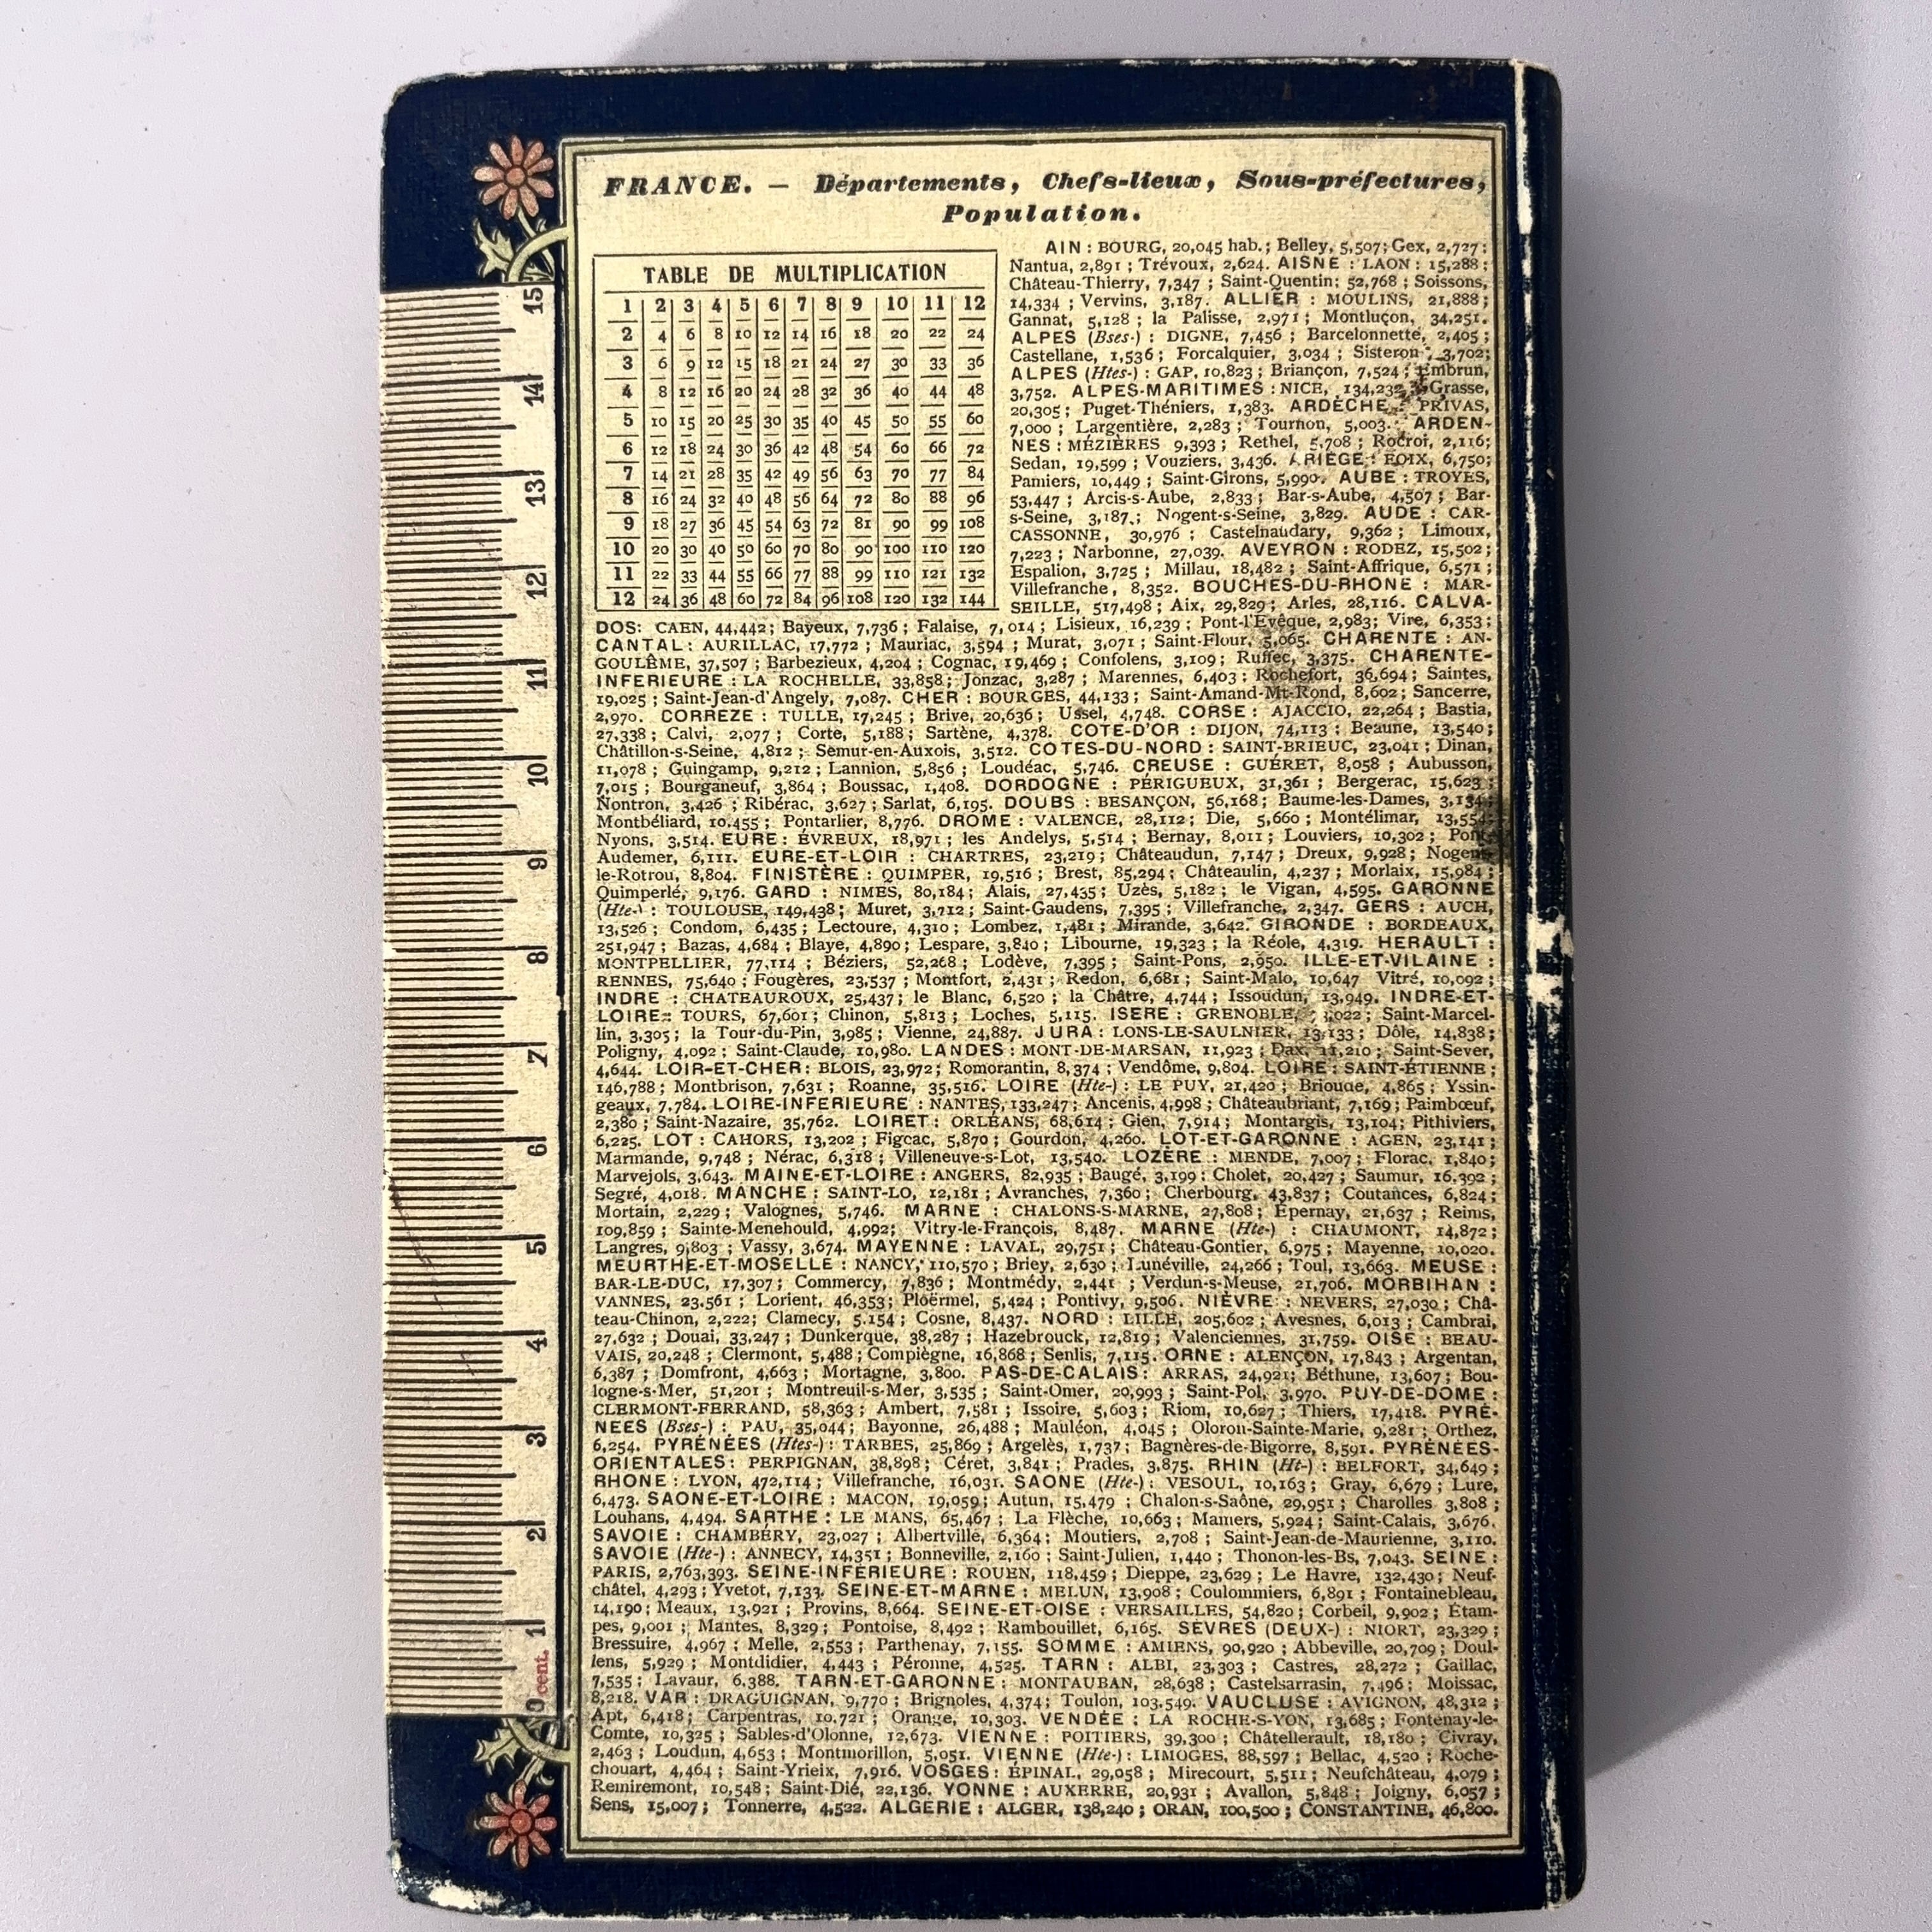 FRANCE. — Départements, Chefs-lieux, Sous-préfectures,
Population.
TABLE DE MULTIPLICATION
1 2 3 4 5 6 7 8 9 10 11 12
2 4 6 8 10 12 14 16 18 20 22 24
3 6 9 12 15 18 21 24 27 30 33 36
4 8 12 16 20 24 28 32 36 40 44 48
5 10 15 20 25 30 35 40 45 50 55 60
6 12 18 24 30 36 42 48 54 60 66 72
7 14 21 28 35 42 49 56 63 70 77 84
8 16 24 32 40 48 56 64 72 80 88 96
9 18 27 36 45 54 63 72 81 90 99 108
10 20 30 40 50 60 70 80 90 100 110 120
11 22 33 44 55 66 77 88 99 110 121 132
12 24 36 48 60 72 84 96 108 120 132 144
AIN : BOURG, 20,045 hab.; Belley, 5,507; Gex, 2,727;
Nantua, 2,891 ; Trévoux, 2,624. AISNE : LAON : 15,288;
Château-Thierry, 7,347 ; Saint-Quentin: 52,768 ; Soissons,
14,334 ; Vervins, 3,187. ALLIER : MOULINS, 21,888;
Gannat, 5,128 ; la Palisse, 2,971 ; Montluçon, 34,251.
ALPES (Bses-) : DIGNE, 7,456 ; Barcelonnette, 2,405 ;
Castellane, 1,536 ; Forcalquier, 3,034 ; Sisteron, 3,702;
ALPES (Htes-) : GAP, 10,823 ; Briançon, 7,524 ; Embrun,
3,752. ALPES-MARITIMES : NICE, 134,232 Grasse,
20,305 ; Puget-Théniers, 1,383. ARDÈCHE : PRIVAS,
7,000 ; Largentière, 2,283 ; Tournon, 5,003. ARDEN-
NES : MÉZIÈRES 9,393 ; Rethel, 5,708 ; Rocroi, 2,116;
Sedan, 19,599 ; Vouziers, 3,436. ARIÈGE : FOIX, 6,750;
Pamiers, 10,449 ; Saint-Girons, 5,990. AUBE : TROYES,
53,447 ; Arcis-s-Aube, 2,833 ; Bar-s-Aube, 4,507 ; Bar-
s-Seine, 3,187 ; Nogent-s-Seine, 3,829. AUDE : CAR-
CASSONNE, 30,976 ; Castelnaudary, 9,362 ; Limoux,
7,223 ; Narbonne, 27,039. AVEYRON : RODEZ, 15,502 ;
Espalion, 3,725 ; Millau, 18,482 ; Saint-Affrique, 6,571 ;
Villefranche, 8,352. BOUCHES-DU-RHONE : MAR-
SEILLE, 517,498 ; Aix, 29,829 ; Arles, 28,116. CALVA-
DOS: CAEN, 44,442; Bayeux, 7,736 ; Falaise, 7,014 ; Lisieux, 16,239 ; Pont-l'Evêque, 2,983; Vire, 6,353 ;
CANTAL : AURILLAC, 17,772 ; Mauriac, 3,594 ; Murat, 3,071 ; Saint-Flour, 5,065. CHARENTE : AN-
GOULÊME, 37,507 ; Barbezieux, 4,204 ; Cognac, 19,469 ; Confolens, 3,109 ; Ruffec, 3,375. CHARENTE-
INFERIEURE : LA ROCHELLE, 33,858 ; Jonzac, 3,287 ; Marennes, 6,403 ; Rochefort, 36,694 ; Saintes,
19,025 ; Saint-Jean-d'Angely, 7,087. CHER : BOURGES, 44,133 ; Saint-Amand-Mt-Rond, 8,602 ; Sancerre,
2,970. CORREZE : TULLE, 17,245 ; Brive, 20,636 ; Ussel, 4,748. CORSE : AJACCIO, 22,264 ; Bastia,
27,338 ; Calvi, 2,077 ; Corte, 5,188 ; Sartène, 4,378. COTE-D'OR : DIJON, 74,113 ; Beaune, 13,540 ;
Châtillon-s-Seine, 4,812 ; Semur-en-Auxois, 3,512. COTES-DU-NORD : SAINT-BRIEUC, 23,041 ; Dinan,
11,078 ; Guingamp, 9,212 ; Lannion, 5,856 ; Loudéac, 5,746. CREUSE : GUÉRET, 8,058 ; Aubusson,
7,015 ; Bourganeuf, 3,864 ; Boussac, 1,408. DORDOGNE : PÉRIGUEUX, 31,361 ; Bergerac, 15,623 ;
Nontron, 3,426 ; Ribérac, 3,627 ; Sarlat, 6,195. DOUBS : BESANÇON, 56,168 ; Baume-les-Dames, 3,134
Montbéliard, 10,455 ; Pontarlier, 8,776. DROME : VALENCE, 28,112 ; Die, 5,660 ; Montélimar,
Nyons, 3,514. EURE : ÉVREUX, 18,971 ; les Andelys, 5,514 ; Bernay, 8,011 ; Louviers, 10,302 ; Pont-
Audemer, 6,111. EURE-ET-LOIR : CHARTRES, 23,219 ; Châteaudun, 7,147 ; Dreux, 9,928 ; Nogent-
le-Rotrou, 8,804. FINISTÈRE : QUIMPER, 19,516 ; Brest, 85,294 ; Châteaulin, 4,237 ; Morlaix, 15,984 ;
Quimperlé, 9,176. GARD : NIMES, 80,184 ; Alais, 27,435 ; Uzès, 5,182 ; le Vigan, 4,595. GARONNE
(Hte-) : TOULOUSE, 149,438 ; Muret, 3,712 ; Saint-Gaudens, 7,395 ; Villefranche, 2,347. GERS : AUCH,
13,526 ; Condom, 6,435 ; Lectoure, 4,310 ; Lombez, 1,481 ; Mirande, 3,642. GIRONDE : BORDEAUX,
251,947 ; Bazas, 4,684 ; Blaye, 4,890 ; Lespare, 3,840 ; Libourne, 19,323 ; la Réole, 4,319. HERAULT :
MONTPELLIER, 77,114 ; Béziers, 52,268 ; Lodève, 7,395 ; Saint-Pons, 2,950. ILLE-ET-VILAINE :
RENNES, 75,640 ; Fougères, 23,537 ; Montfort, 2,431 ; Redon, 6,681 ; Saint-Malo, 10,647 Vitré, 10,092 ;
INDRE : CHATEAUROUX, 25,437 ; le Blanc, 6,520 ; la Châtre, 4,744 ; Issoudun, 13,949. INDRE-ET-
LOIRE : TOURS, 67,601 ; Chinon, 5,813 ; Loches, 5,115. ISERE : GRENOBLE, Saint-Marcel-
lin, 3,305 ; la Tour-du-Pin, 3,985 ; Vienne, 24,887. JURA : LONS-LE-SAULNIER, 13,133 ; Dôle, 14,838 ;
Poligny, 4,092 ; Saint-Claude, 10,980. LANDES : MONT-DE-MARSAN, 11,923 ; Dax, 11,210 ; Saint-Sever,
4,644. LOIR-ET-CHER : BLOIS, 23,972 ; Romorantin, 8,374 ; Vendôme, 9,804. LOIRE : SAINT-ÉTIENNE ;
146,788 ; Montbrison, 7,631 ; Roanne, 35,516. LOIRE (Hte-) : LE PUY, 21,420 ; Brioude, 4,865 ; Yssin-
geaux, 7,784. LOIRE-INFERIEURE : NANTES, 133,247 ; Ancenis, 4,998 ; Châteaubriant, 7,169 ; Paimbœuf,
2,380 ; Saint-Nazaire, 35,762. LOIRET : ORLÉANS, 68,614 ; Gien, 7,914 ; Montargis, 13,104; Pithiviers,
6,225. LOT : CAHORS, 13,202 ; Figeac, 5,870 ; Gourdon, 4,260. LOT-ET-GARONNE : AGEN, 23,141 ;
Marmande, 9,748 ; Nérac, 6,318 ; Villeneuve-s-Lot, 13,540. LOZÈRE : MENDE, 7,007 ; Florac, 1,840 ;
Marvejols, 3,643. MAINE-ET-LOIRE : ANGERS, 82,935 ; Baugé, 3,199 ; Cholet, 20,427 ; Saumur, 16,392 ;
Segré, 4,018. MANCHE : SAINT-LO, 12,181 ; Avranches, 7,360 ; Cherbourg, 43,837 ; Coutances, 6,824 ;
Mortain, 2,229 ; Valognes, 5,746. MARNE : CHALONS-S-MARNE, 27,808 ; Épernay, 21,637 ; Reims,
109,859 ; Sainte-Menehould, 4,992; Vitry-le-François, 8,487. MARNE (Hte-) : CHAUMONT, 14,872 ;
Langres, 9,803 ; Vassy, 3,674. MAYENNE : LAVAL, 29,751 ; Château-Gontier, 6,975 ; Mayenne, 10,020.
MEURTHE-ET-MOSELLE : NANCY, 110,570 ; Briey, 2,630 ; Lunéville, 24,266 ; Toul, 13,663. MEUSE :
BAR-LE-DUC, 17,307 ; Commercy, 7,836 ; Montmédy, 2,441 ; Verdun-s-Meuse, 21,706. MORBIHAN :
VANNES, 23,561 ; Lorient, 46,353 ; Ploërmel, 5,424 ; Pontivy, 9,506. NIÈVRE : NEVERS, 27,030 ; Châ-
teau-Chinon, 2,222; Clamecy, 5,154 ; Cosne, 8,437. NORD : LILLE, 205,602 ; Avesnes, 6,013 ; Cambrai,
27,632 ; Douai, 33,247 ; Dunkerque, 38,287 ; Hazebrouck, 12,819 ; Valenciennes, 31,759. OISE : BEAU-
VAIS, 20,248 ; Clermont, 5,488 ; Compiègne, 16,868 ; Senlis, 7,115. ORNE : ALENÇON, 17,843 ; Argentan,
6,387 ; Domfront, 4,663 ; Mortagne, 3,800. PAS-DE-CALAIS : ARRAS, 24,921; Béthune, 13,607 ; Bou-
logne-s-Mer, 51,201 ; Montreuil-s-Mer, 3,535 ; Saint-Omer, 20,993 ; Saint-Pol, 3,970. PUY-DE-DOME :
CLERMONT-FERRAND, 58,363 ; Ambert, 7,581 ; Issoire, 5,603 ; Riom, 10,627 ; Thiers, 17,418. PYRÉ-
NEES (Bses-) : PAU, 35,044; Bayonne, 26,488 ; Mauléon, 4,045 ; Oloron-Sainte-Marie, 9,281 ; Orthez,
6,254. PYRÉNÉES (Htes-) : TARBES, 25,869 ; Argelès, 1,737 ; Bagnères-de-Bigorre, 8,591. PYRÉNÉES-
ORIENTALES : PERPIGNAN, 38,898 ; Céret, 3,841 ; Prades, 3,875. RHIN (Ht-) : BELFORT, 34,649 ;
RHONE : LYON, 472,114 ; Villefranche, 16,031. SAONE (Hte-) : VESOUL, 10,163 ; Gray, 6,679 ; Lure,
6,473. SAONE-ET-LOIRE : MACON, 19,059 ; Autun, 15,479 ; Chalon-s-Saône, 29,951 ; Charolles 3,808 ;
Louhans, 4,494. SARTHE : LE MANS, 65,467 ; La Flèche, 10,663 ; Mamers, 5,924 ; Saint-Calais, 3,676.
SAVOIE : CHAMBÉRY, 23,027 ; Albertville, 6,364 ; Moutiers, 2,708 ; Saint-Jean-de-Maurienne, 3,110.
SAVOIE (Hte-) : ANNECY, 14,351 ; Bonneville, 2,160 ; Saint-Julien, 1,440 ; Thonon-les-Bs, 7,043. SEINE :
PARIS, 2,763,393. SEINE-INFÉRIEURE : ROUEN, 118,459 ; Dieppe, 23,629 ; Le Havre, 132,430 ; Neuf-
châtel, 4,293 ; Yvetot, 7,133. SEINE-ET-MARNE : MELUN, 13,908 ; Coulommiers, 6,891 ; Fontainebleau,
14,190 ; Meaux, 13,921 ; Provins, 8,664. SEINE-ET-OISE : VERSAILLES, 54,820 ; Corbeil, 9,902 ; Étam-
pes, 9,001 ; Mantes, 8,329 ; Pontoise, 8,492 ; Rambouillet, 6,165. SÈVRES (DEUX-) : NIORT, 23,329 ;
Bressuire, 4,967 ; Melle, 2,553 ; Parthenay, 7,155. SOMME : AMIENS, 90,920 ; Abbeville, 20,709 ; Doul-
lens, 5,929 ; Montdidier, 4,443 ; Péronne, 4,525. TARN : ALBI, 23,303 ; Castres, 28,272 ; Gaillac,
7,535 ; Lavaur, 6,388. TARN-ET-GARONNE : MONTAUBAN, 28,638 ; Castelsarrasin, 7,496 ; Moissac,
8,218. VAR : DRAGUIGNAN, 9,770 ; Brignoles, 4,374; Toulon, 103,549. VAUCLUSE : AVIGNON, 48,312 ;
Apt, 6,418 ; Carpentras, 10,721 ; Orange, 10,303. VENDÉE : LA ROCHE-S-YON, 13,685 ; Fontenay-le-
Comte, 10,325 ; Sables-d'Olonne, 12,673. VIENNE : POITIERS, 39,300 ; Châtellerault, 18,180 ; Civray,
2,463 ; Loudun, 4,653 ; Montmorillon, 5,051. VIENNE (Hte-) : LIMOGES, 88,597 ; Bellac, 4,520 ; Roche-
chouart, 4,464 ; Saint-Yrieix, 7,916. VOSGES : ÉPINAL, 29,058 ; Mirecourt, 5,511 ; Neufchâteau, 4,079 ;
Remiremont, 10,548 ; Saint-Dié, 22,136. YONNE : AUXERRE, 20,931 ; Avallon, 5,848 ; Joigny, 6,057 ;
Sens, 15,007 ; Tonnerre, 4,522. ALGÉRIE : ALGER, 138,240 ; ORAN, 100,500 ; CONSTANTINE, 46,800.
15
14
13
12
11
10
9
8
7
6
5
4
3
2
1
0 cent.